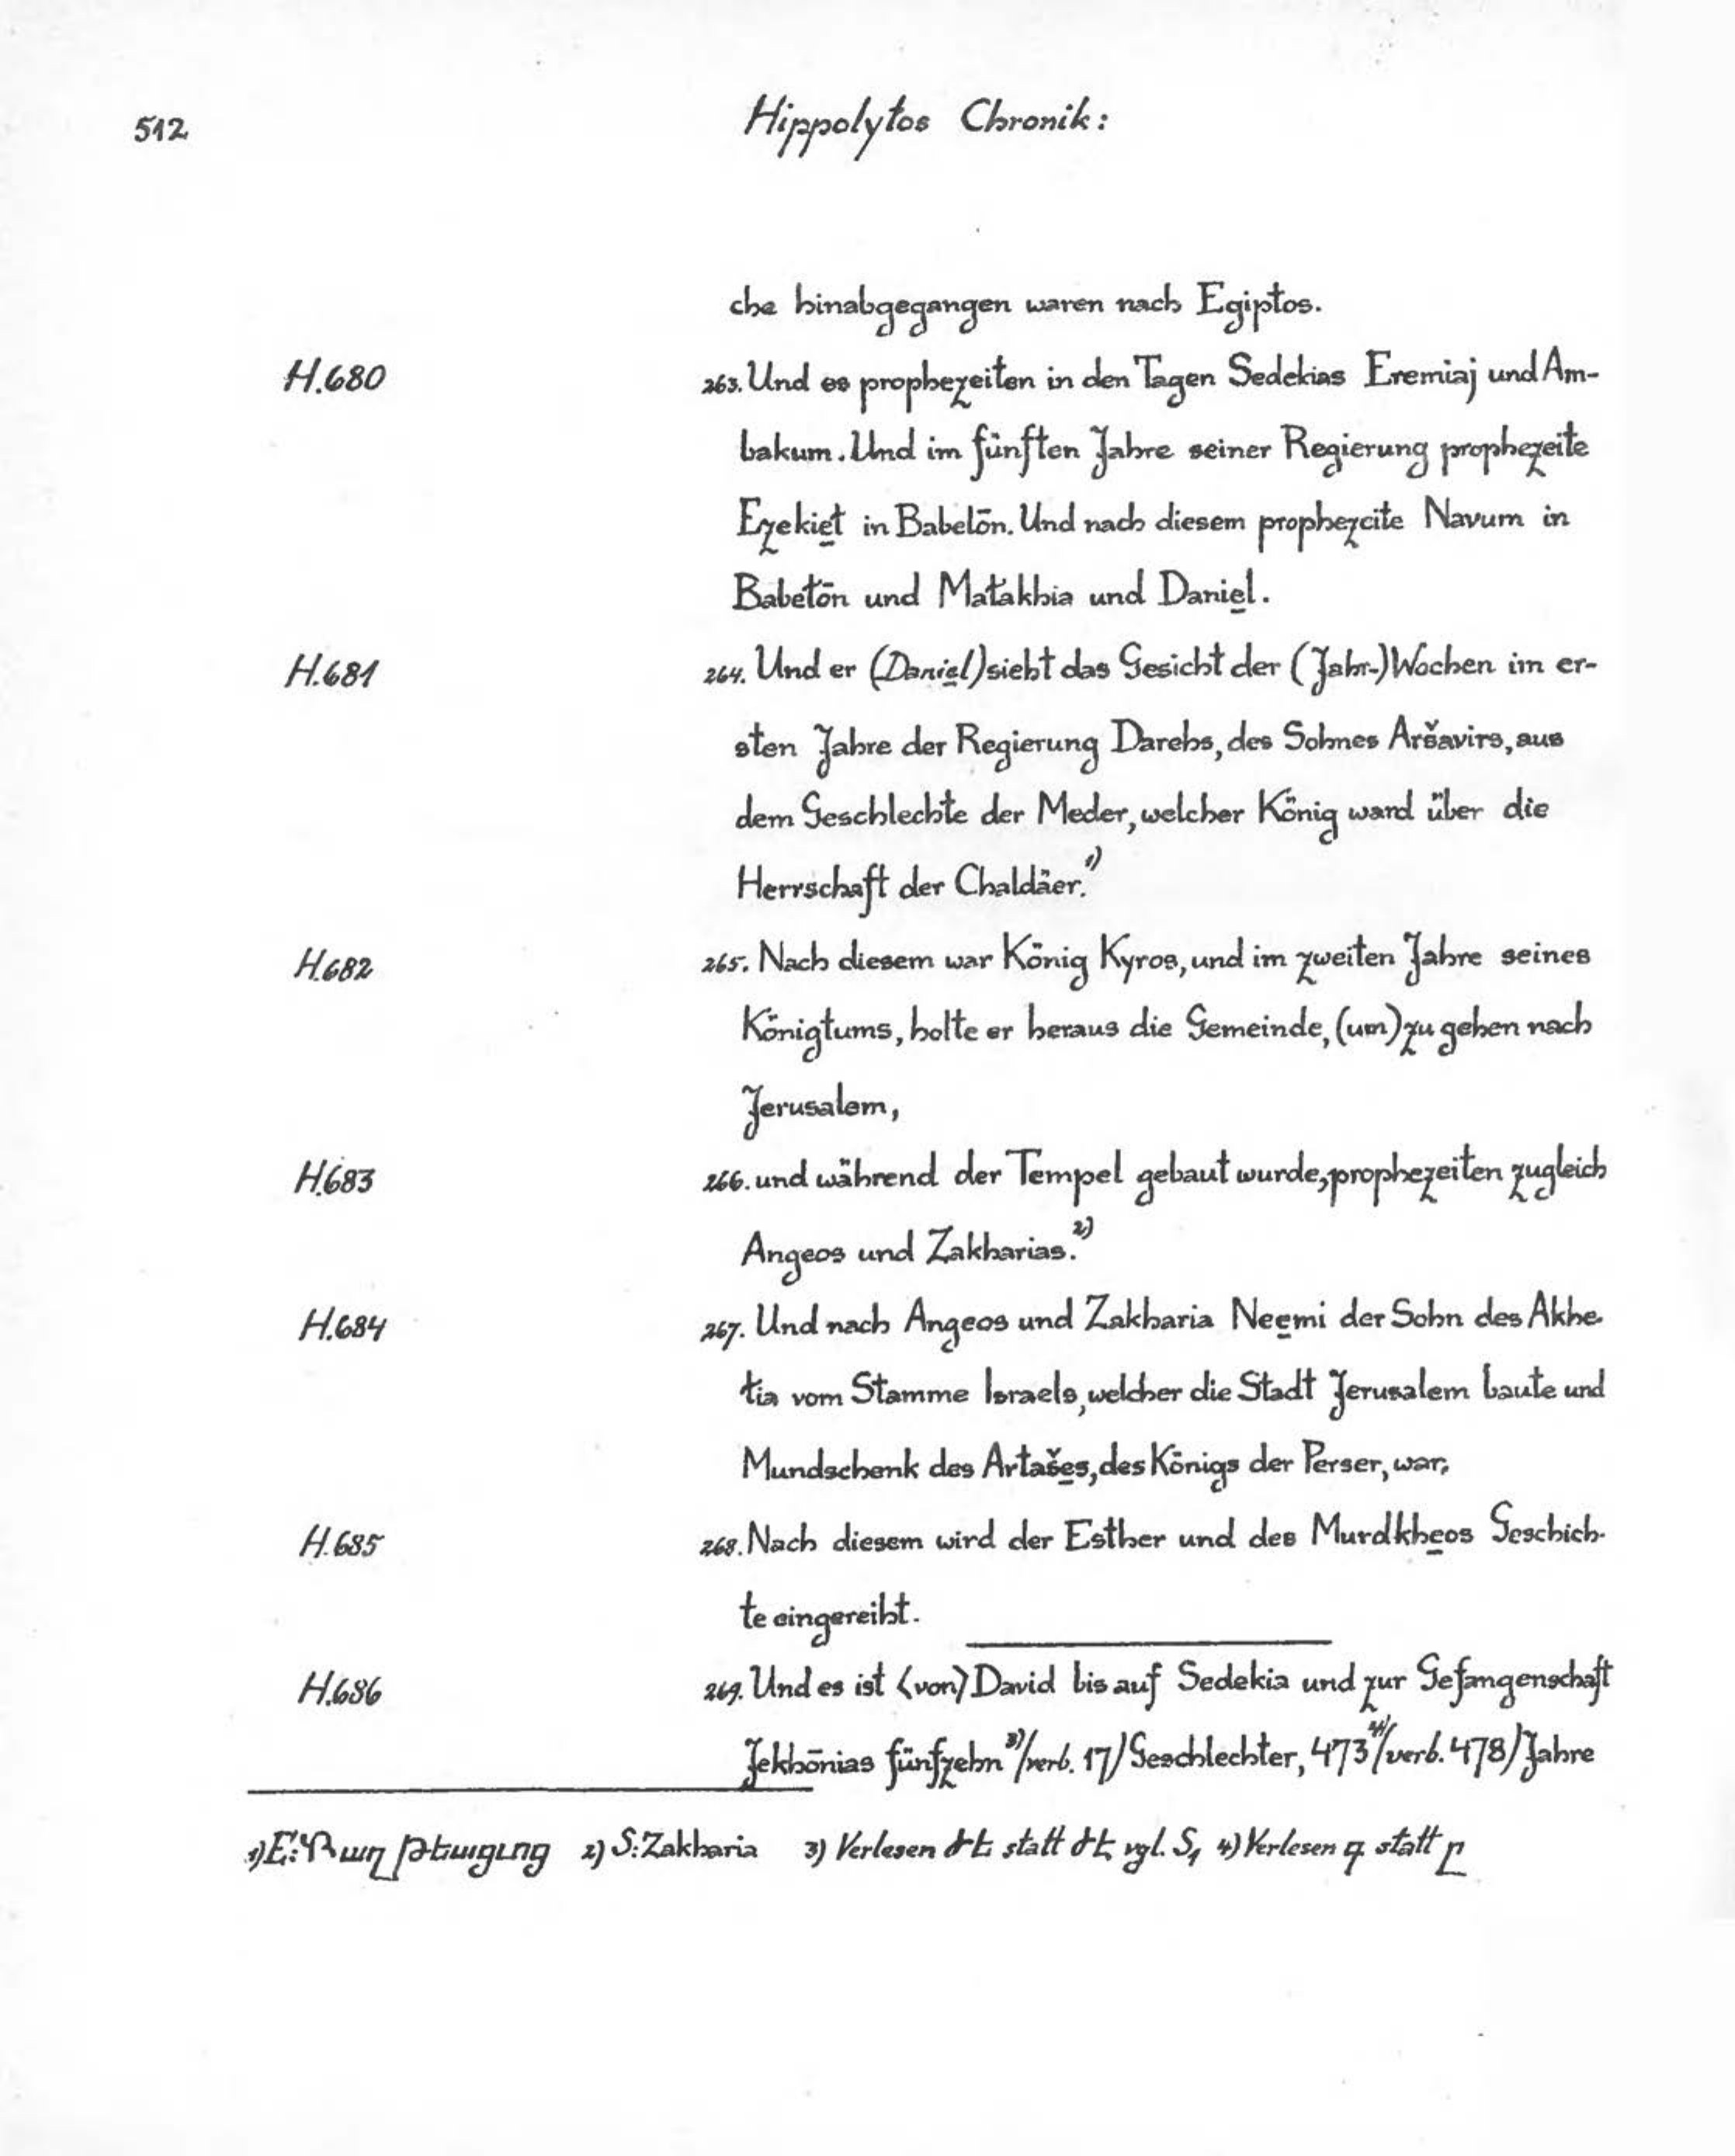 512
Hippolytos Chronik:
che hinabgegangen waren nach Egiptos.
H.680 263. Und es prophezeiten in den Tagen Sedekias Eremiaj und Am-
bakum. Und im fünften Jahre seiner Regierung prophezeite
Ezekie̱ł in Babelōn. Und nach diesem prophezeite Navum in
Babełōn und Małakhia und Danie̱l.
H.681 264. Und er (Danie̱l) sieht das Gesicht der (Jahr-)Wochen im er-
sten Jahre der Regierung Darehs, des Sohnes Aršavirs, aus
dem Geschlechte der Meder, welcher König ward über die
Herrschaft der Chaldäer.¹⁾
H.682 265. Nach diesem war König Kyros, und im zweiten Jahre seines
Königtums, holte er heraus die Gemeinde, (um) zu gehen nach
Jerusalem,
H.683 266. und während der Tempel gebaut wurde, prophezeiten zugleich
Angeos und Zakharias.²⁾
H.684 267. Und nach Angeos und Zakharia Nee̱mi der Sohn des Akhe-
łia vom Stamme Israels, welcher die Stadt Jerusalem baute und
Mundschenk des Artaše̱s, des Königs der Perser, war,
H.685 268. Nach diesem wird der Esther und des Murdkhe̱os Geschich-
te eingereiht.
H.686 269. Und es ist <von> David bis auf Sedekia und zur Gefangenschaft
Jekhōnias fünfzehn³⁾ /verb. 17/ Geschlechter, 473⁴⁾ /verb. 478/ Jahre
1) E: 2) S: Zakharia 3) Verlesen statt vgl. S₁ 4) Verlesen զ statt ը